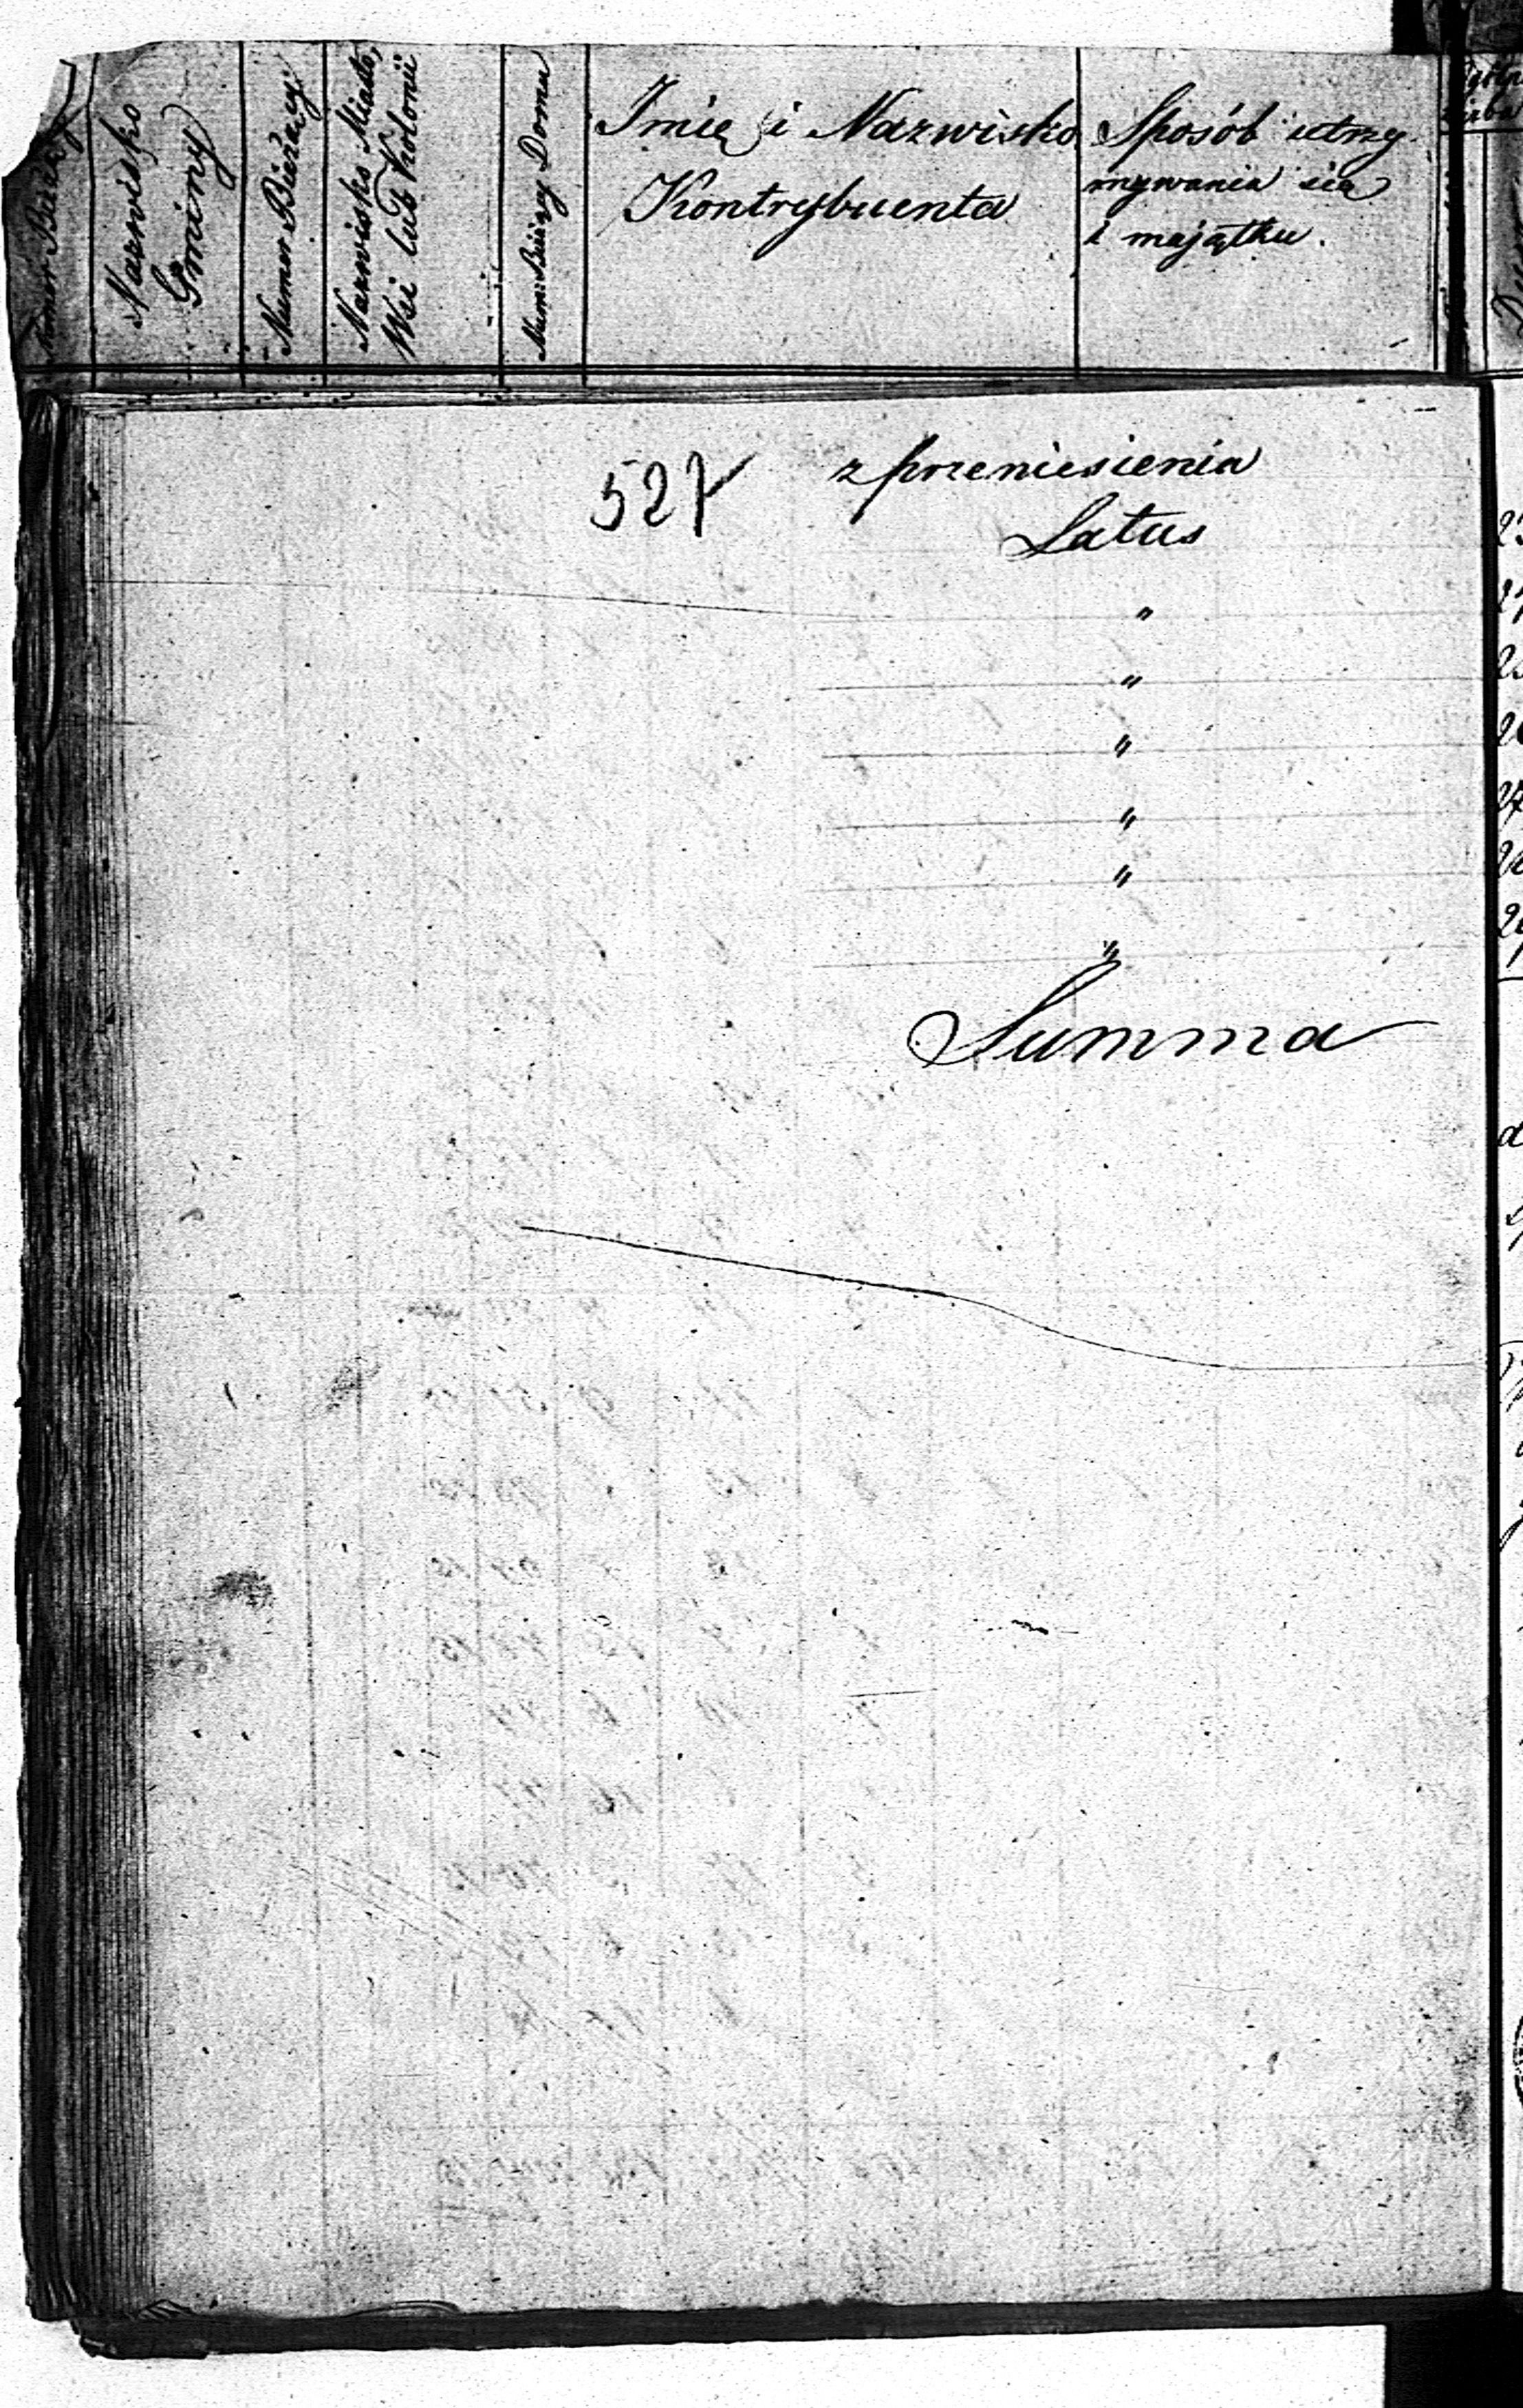 Numer Bieżący
Nazwisko
Gminy
Numer Bieżący
Nazwisko Miasta,
Wsi lub Kolonii
Num: Bieżący Domu
Imię i Nazwisko
Kontrybuenta
Sposób utrzy-
mywania się
i majątku.
527
z przeniesienia
Latus
"
"
"
"
"
"
Summa